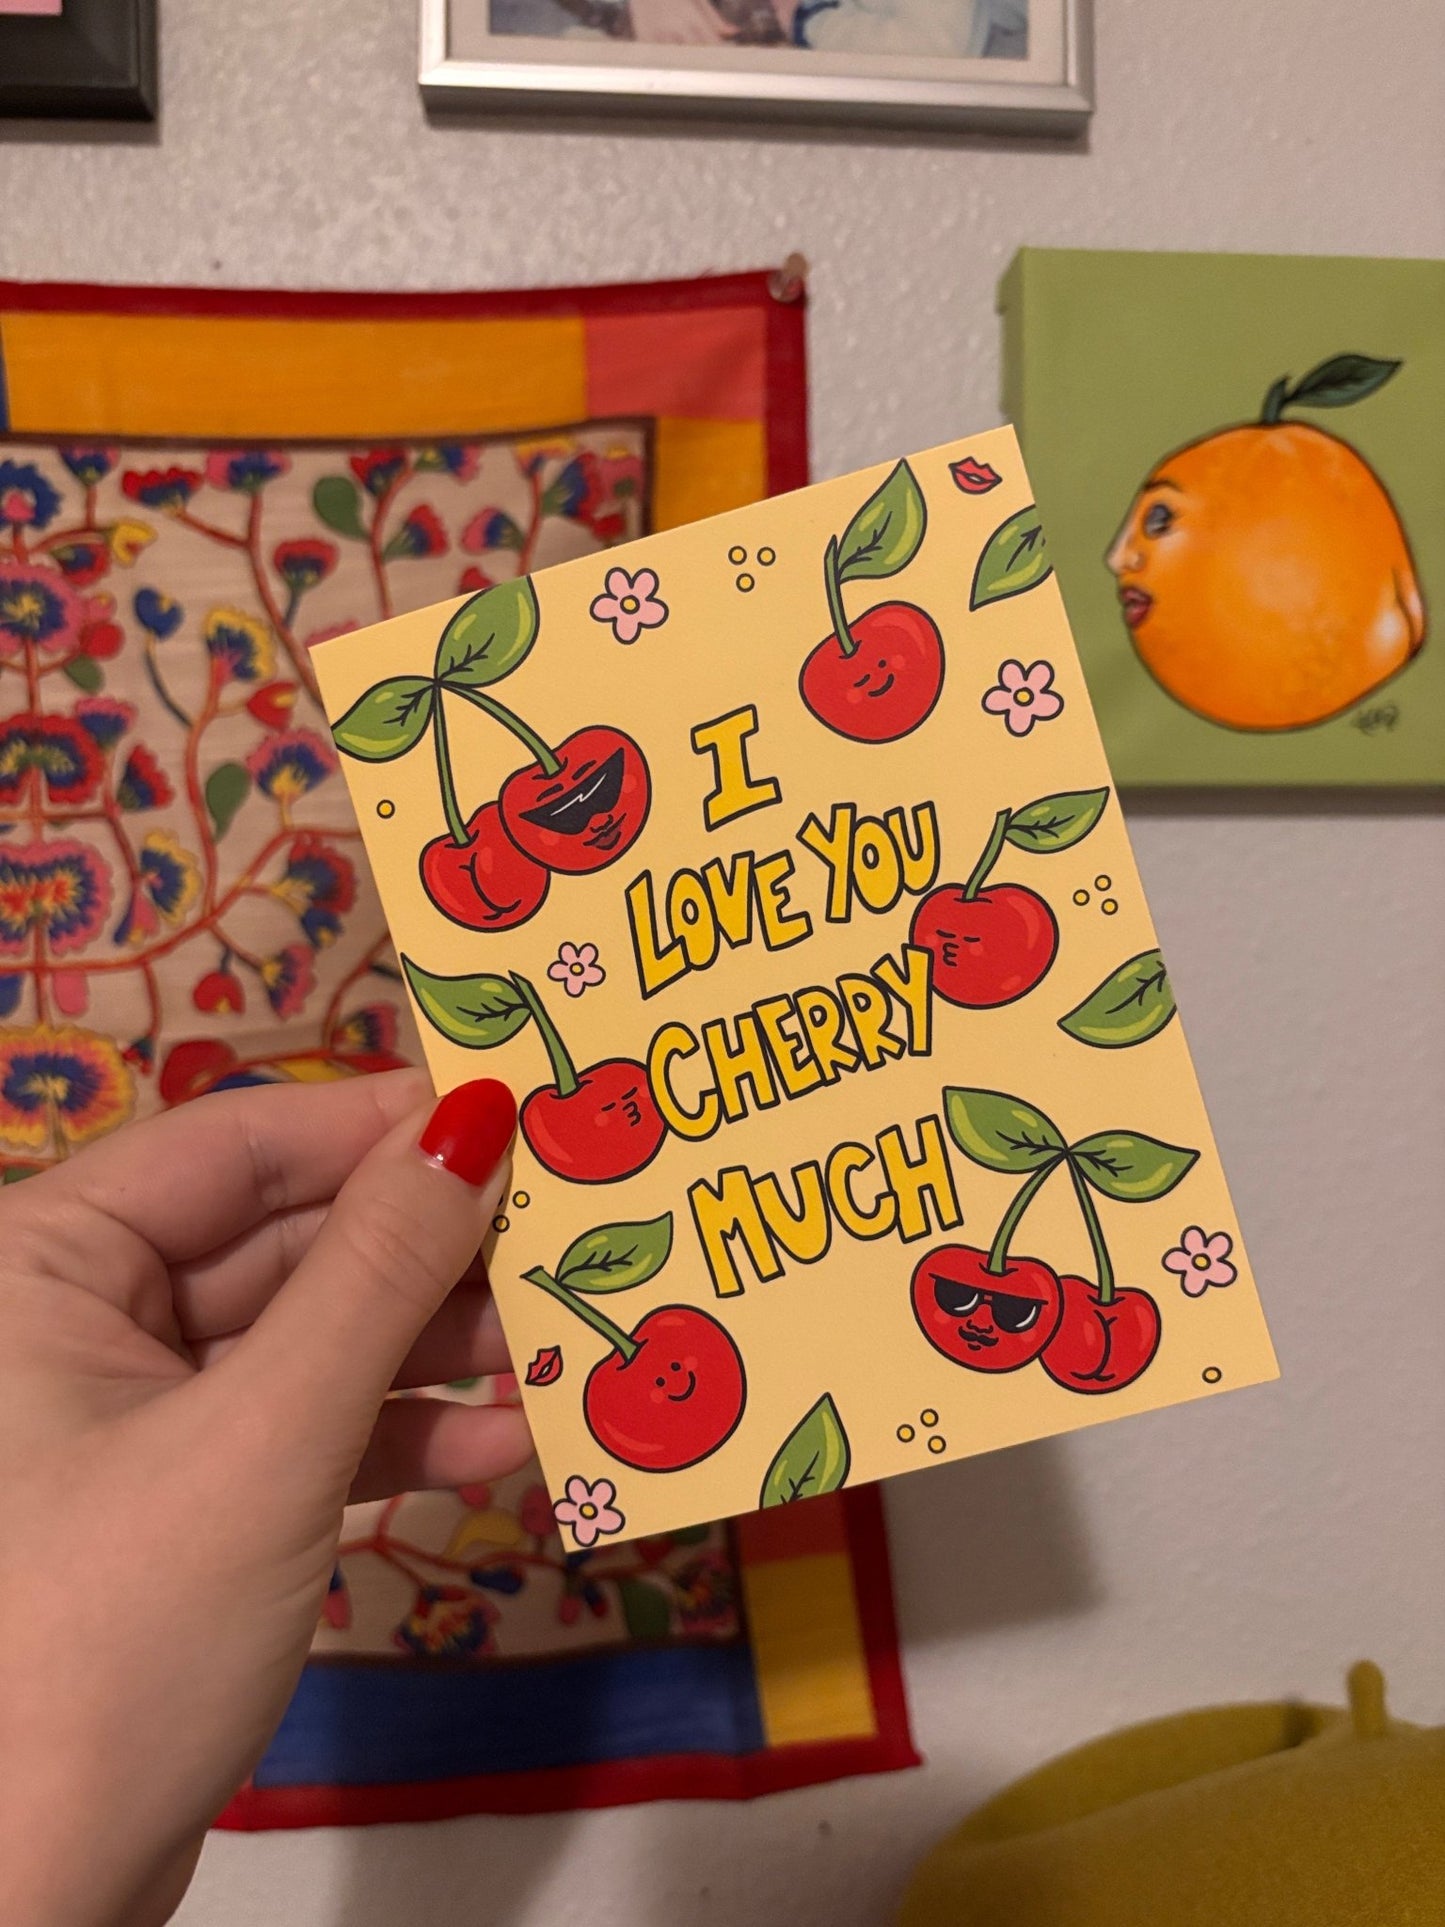 I
LOVE YOU
CHERRY
MUCH